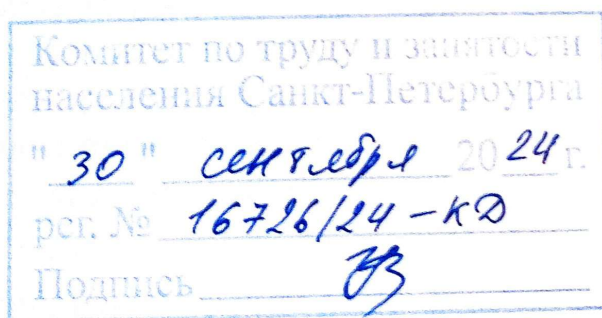 Комитет по труду и занятости
населения Санкт-Петербурга
"30" сентября 2024 г.
рег. № 16726/24-КД
Подпись